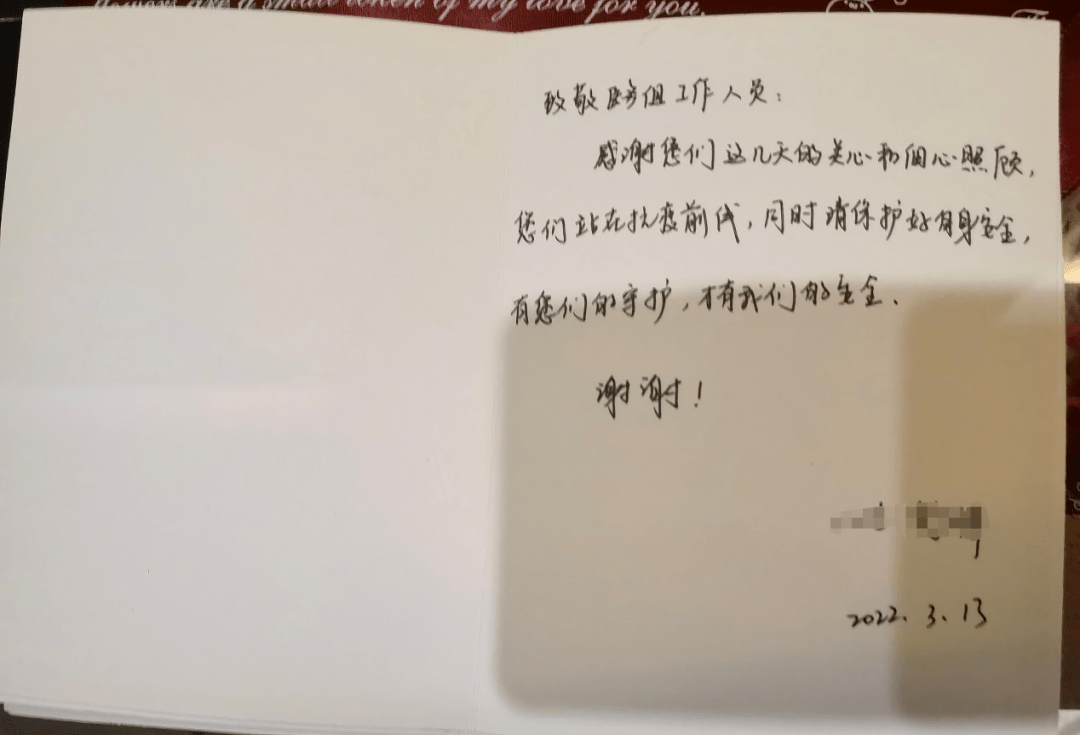 are a small token of my love for you.
致敬医务组工作人员：
感谢您们这几天的关心和细心照顾，
您们站在抗疫前线，同时请保护好自身安全，
有您们的守护，才有我们的安全.
谢谢！
2022.3.13